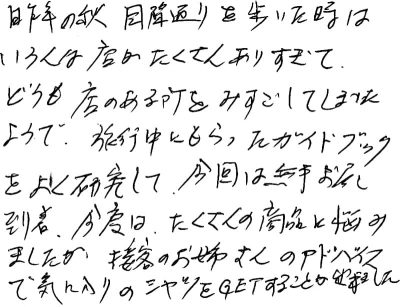 昨年の秋 国際通りを歩いた時は
いろんな店がたくさんありすぎて、
どうも店のある所をみすごしてしまった
ようで、旅行中にもらったガイドブック
をよく研究して、今回は無事お店
到着、今度は、たくさんの商品に悩み
ましたが 接客のお姉さんのアドバイス
で気に入りのシャツをGETすることが出来ました